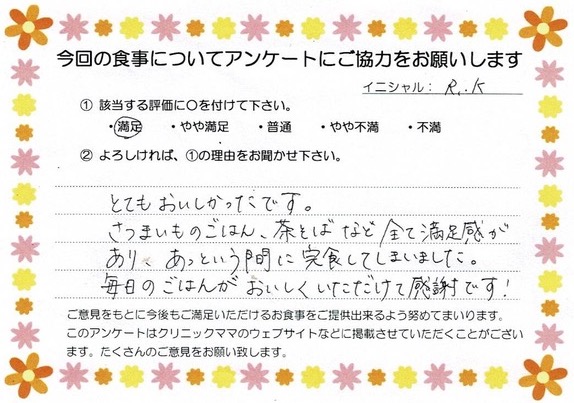 今回の食事についてアンケートにご協力をお願いします
イニシャル： R.K
① 該当する評価に〇を付けて下さい。
・満足 ・やや満足 ・普通 ・やや不満 ・不満
② よろしければ、①の理由をお聞かせ下さい。
とてもおいしかったです。
さつまいものごはん、茶そばなど全て満足感が
あり、あっという間に完食してしまいました。
毎日のごはんがおいしくいただけて感謝です!
ご意見をもとに今後もご満足いただけるお食事をご提供出来るよう努めてまいります。
このアンケートはクリニックママのウェブサイトなどに掲載させていただくことがござい
ます。たくさんのご意見をお願い致します。